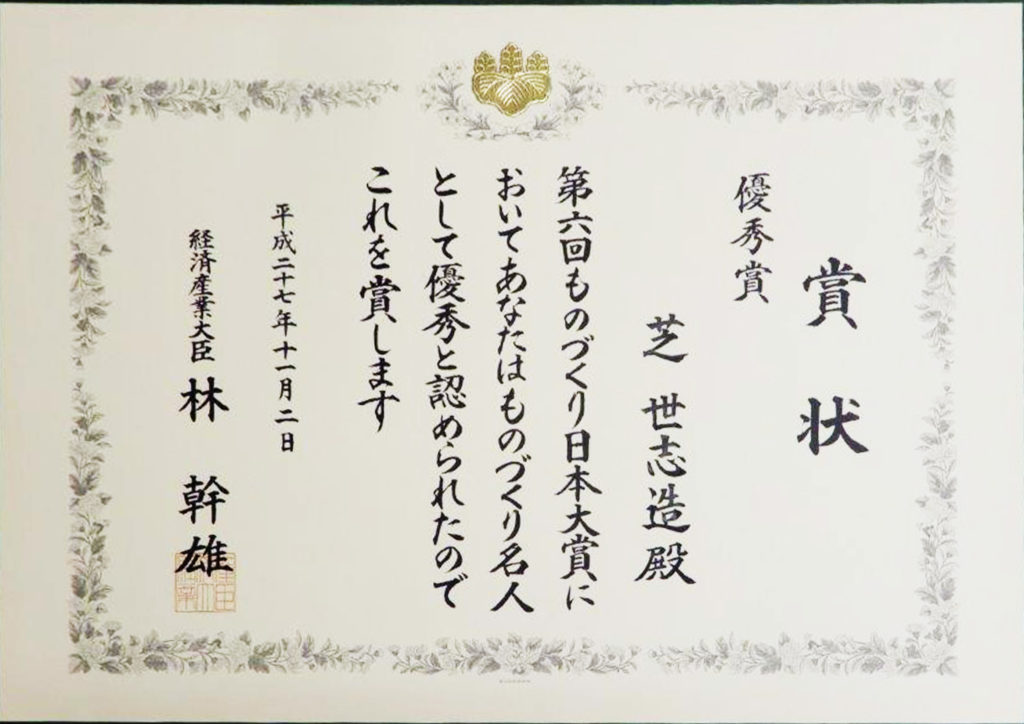 賞状
優秀賞
芝 世志造殿
第六回ものづくり日本大賞に
おいてあなたはものづくり名人
として優秀と認められたので
これを賞します
平成二十七年十一月二日
経済産業大臣 林 幹雄